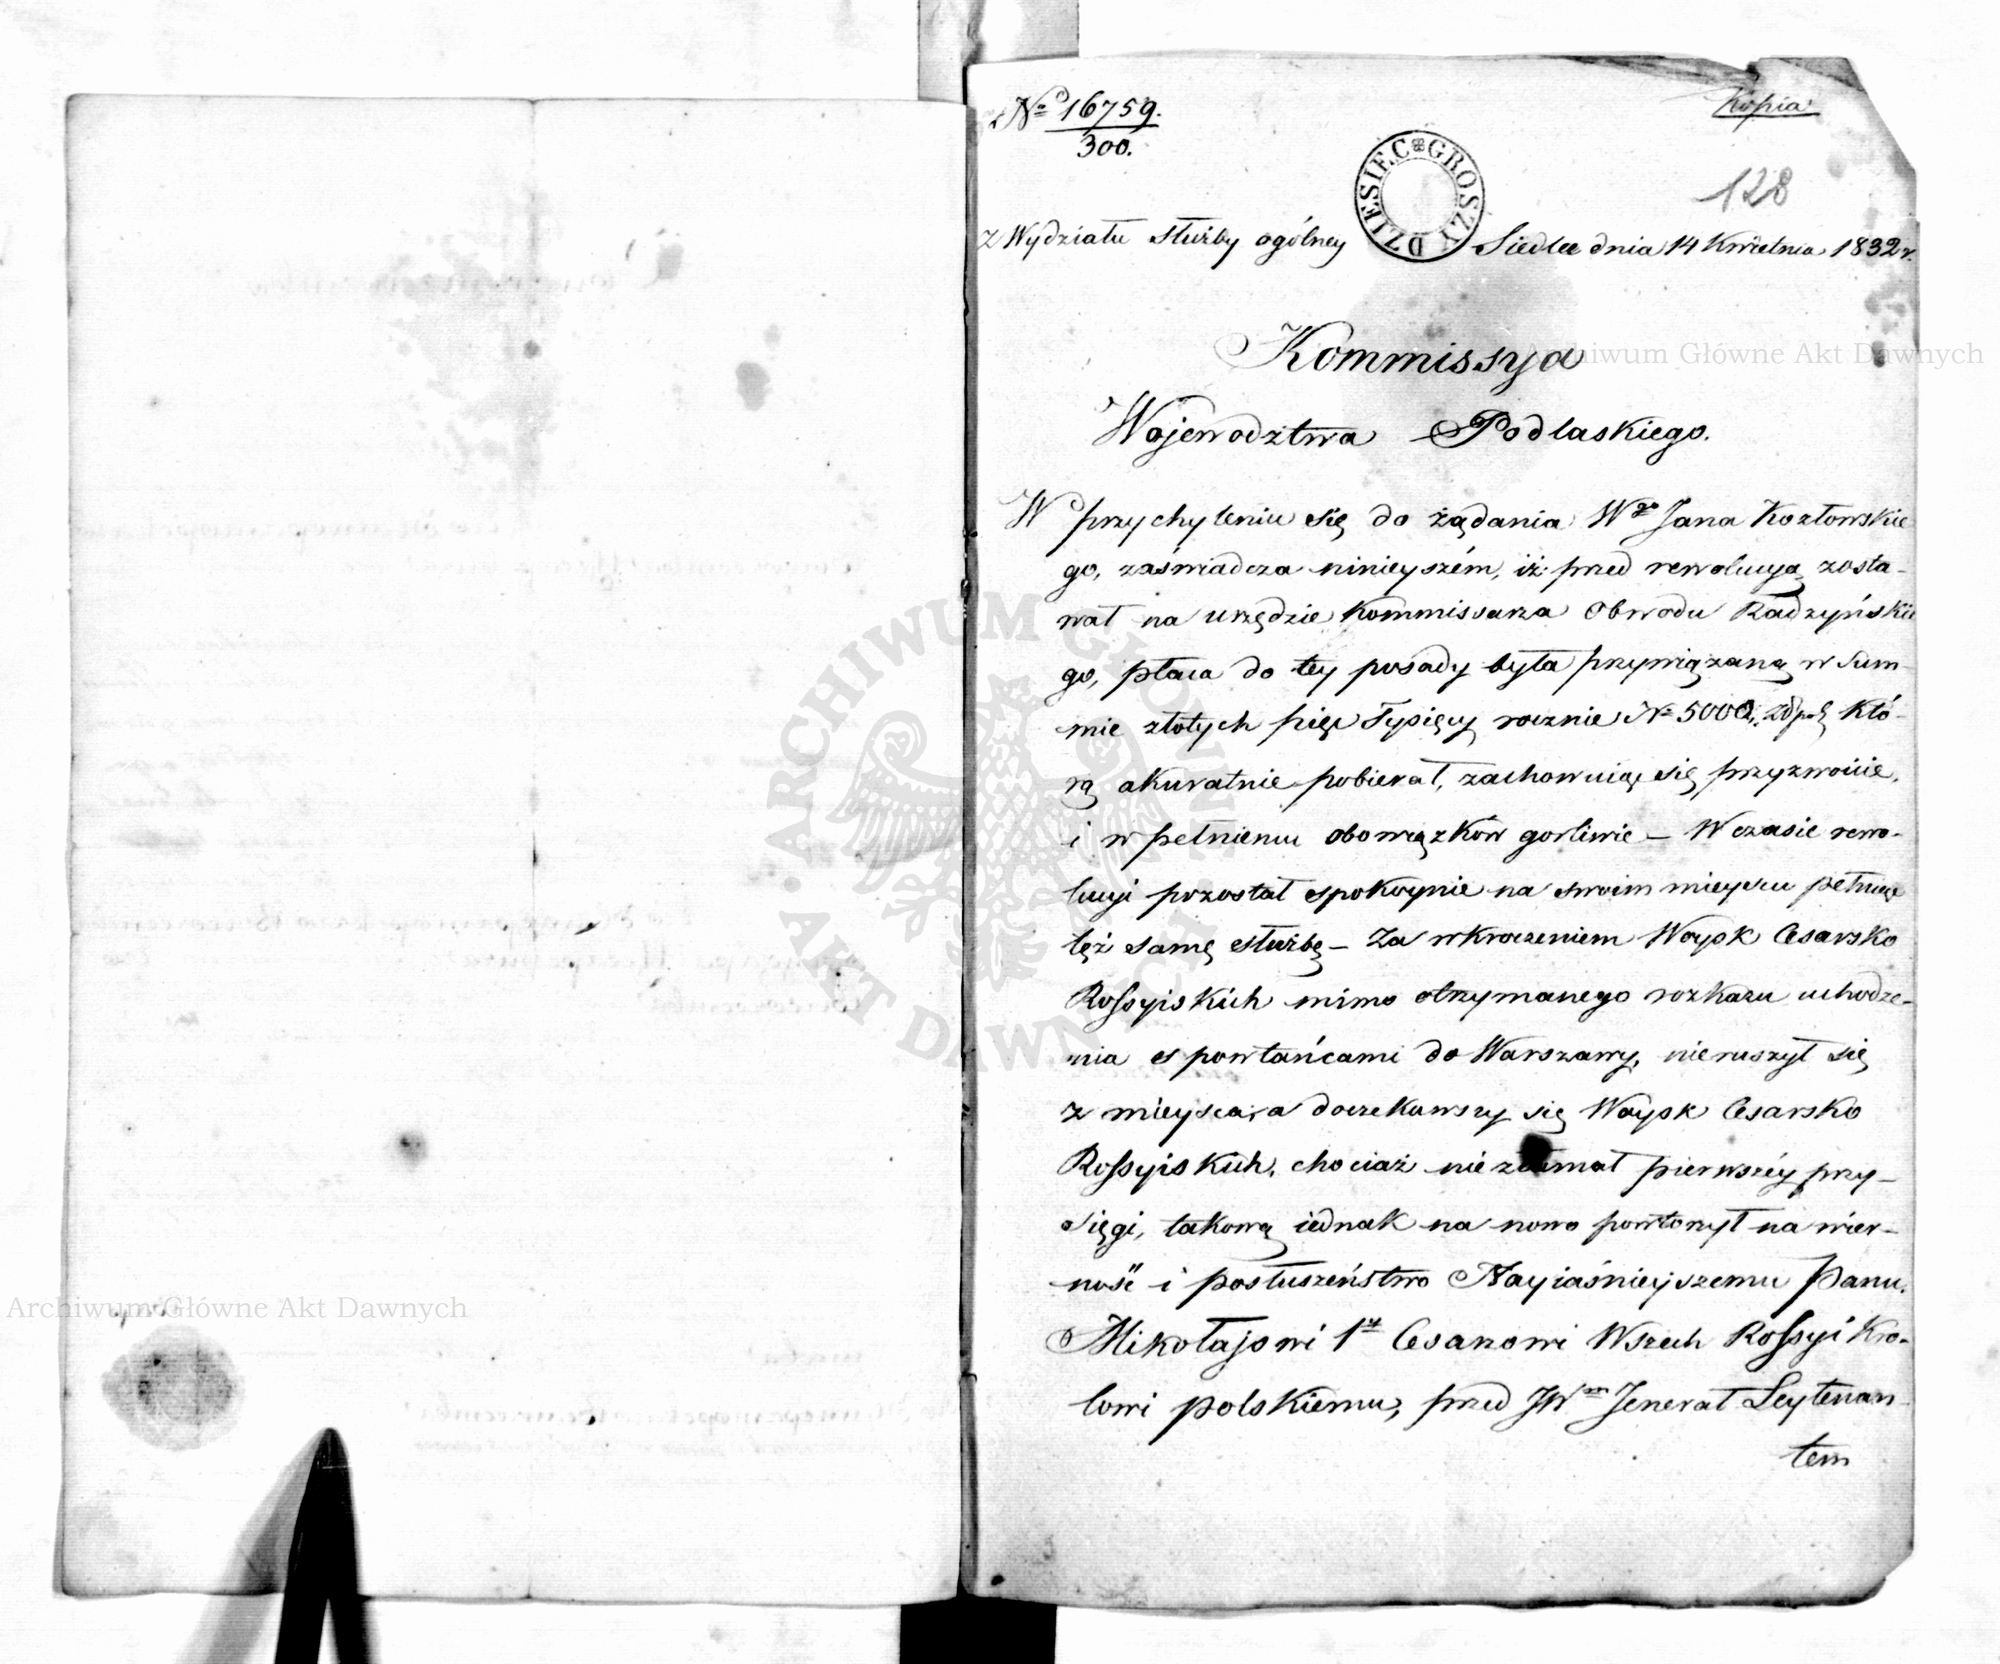 z No 16759.
300.
Kopia
128
DZIESIĘC GROSZY
z Wydziału służby ogólney
Siedlce dnia 14 Kwietnia 1832 r.
Kommissya
Wojewodztwa Podlaskiego.
W przychyleniu się do żądania Wgo Jana Kozłowskie
go, zaświadcza ninieyszém, iż przed rewolucyą zosta-
wał na urzędzie Kommissarza Obwodu Radzyńskie
go, płaca do tey posady była przywiązaną w Sum-
mie złotych pięć Tysięcy rocznie No 5000, Złpol, któ-
rą akuratnie pobierał, zachowuiąc się przyzwoicie,
i w pełnieniu obowiązków gorliwie – W czasie rewo-
lucyi pozostał spokoynie na swoim mieyscu pełniąc
też samę służbę – Za wkroczeniem Woysk Cesarsko
Rossyiskich mimo otrzymanego rozkazu uchodze-
nia s powstańcami do Warszawy, nieruszył się
z mieysca, a doczekawszy się Woysk Cesarsko
Rossyiskich, chociaż nie złamał pierwszéy przy-
sięgi, takową iednak na nowo powtorzył na wier-
ność i posłuszeństwo Nayiaśnieyszemu Panu,
Mikołajowi 1mu Cesarzowi Wszech Rossyi Kró-
lowi polskiemu, przed JWm Jenerał Leytenan-
tem
Archiwum Główne Akt Dawnych
Archiwum Główne Akt Dawnych
ARCHIWUM GŁÓWNE AKT DAWNYCH